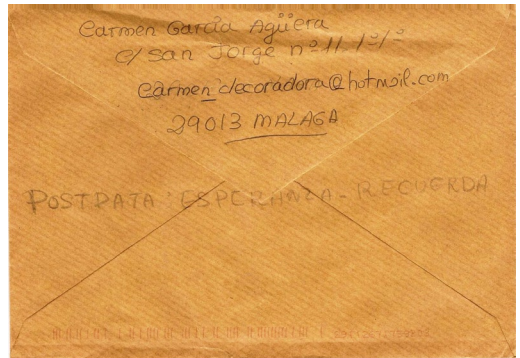 Carmen García Agüera
c/ San Jorge nº 11. 1º 1ª
carmen_decoradora@hotmail.com
29013 MALAGA
POSTDATA: ESPERANZA - RECUERDA